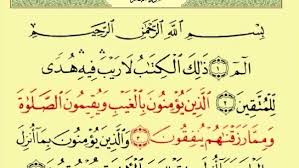 بِسْمِ اللَّهِ الرَّحْمَٰنِ الرَّحِيمِ
الٓمٓ ۝١ ذَٰلِكَ الْكِتَٰبُ لَا رَيْبَ ۛ فِيهِ ۛ هُدًى
لِّلْمُتَّقِينَ ۝٢ الَّذِينَ يُؤْمِنُونَ بِالْغَيْبِ وَيُقِيمُونَ الصَّلَوٰةَ
وَمِمَّا رَزَقْنَٰهُمْ يُنفِقُونَ ۝٣ وَالَّذِينَ يُؤْمِنُونَ بِمَآ أُنزِلَ